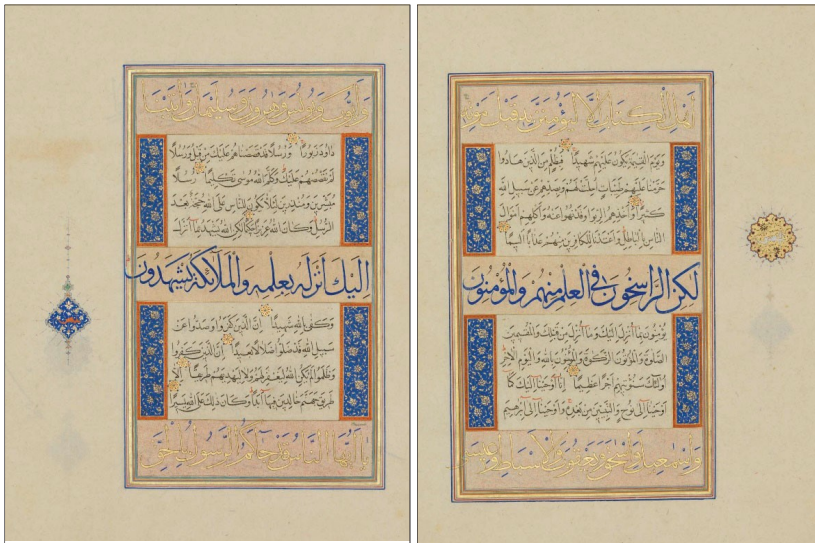 اهل الكتاب الا ليؤمنن به قبل موته
ويوم القيمة يكون عليهم شهيدا فبظلم من الذين هادوا
حرمنا عليهم طيبات احلت لهم وبصدهم عن سبيل الله
كثيرا واخذهم الربوا وقد نهوا عنه واكلهم اموال
الناس بالباطل واعتدنا للكافرين منهم عذابا اليما
لكن الراسخون في العلم منهم والمؤمنون
يؤمنون بما انزل اليك وما انزل من قبلك والمقيمين
الصلوة والمؤتون الزكوة والمؤمنون بالله واليوم الاخر
اولئك سنؤتيهم اجرا عظيما انا اوحينا اليك كما
اوحينا الى نوح والنبيين من بعده واوحينا الى ابرهيم
واسمعيل واسحق ويعقوب والاسباط وعيسى
وايوب ويونس وهرون وسليمان واتينا
داود زبورا ورسلا قد قصصناهم عليك من قبل ورسلا
لم نقصصهم عليك وكلم الله موسى تكليما رسلا
مبشرين ومنذرين لئلا يكون للناس على الله حجة بعد
الرسل وكان الله عزيزا حكيما لكن الله يشهد بما انزل
اليك انزله بعلمه والملائكة يشهدون
وكفى بالله شهيدا ان الذين كفروا وصدوا عن
سبيل الله قد ضلوا ضلالا بعيدا ان الذين كفروا
وظلموا لم يكن الله ليغفر لهم ولا ليهديهم طريقا الا
طريق جهنم خالدين فيها ابدا وكان ذلك على الله يسيرا
يا ايها الناس قد جاءكم الرسول بالحق